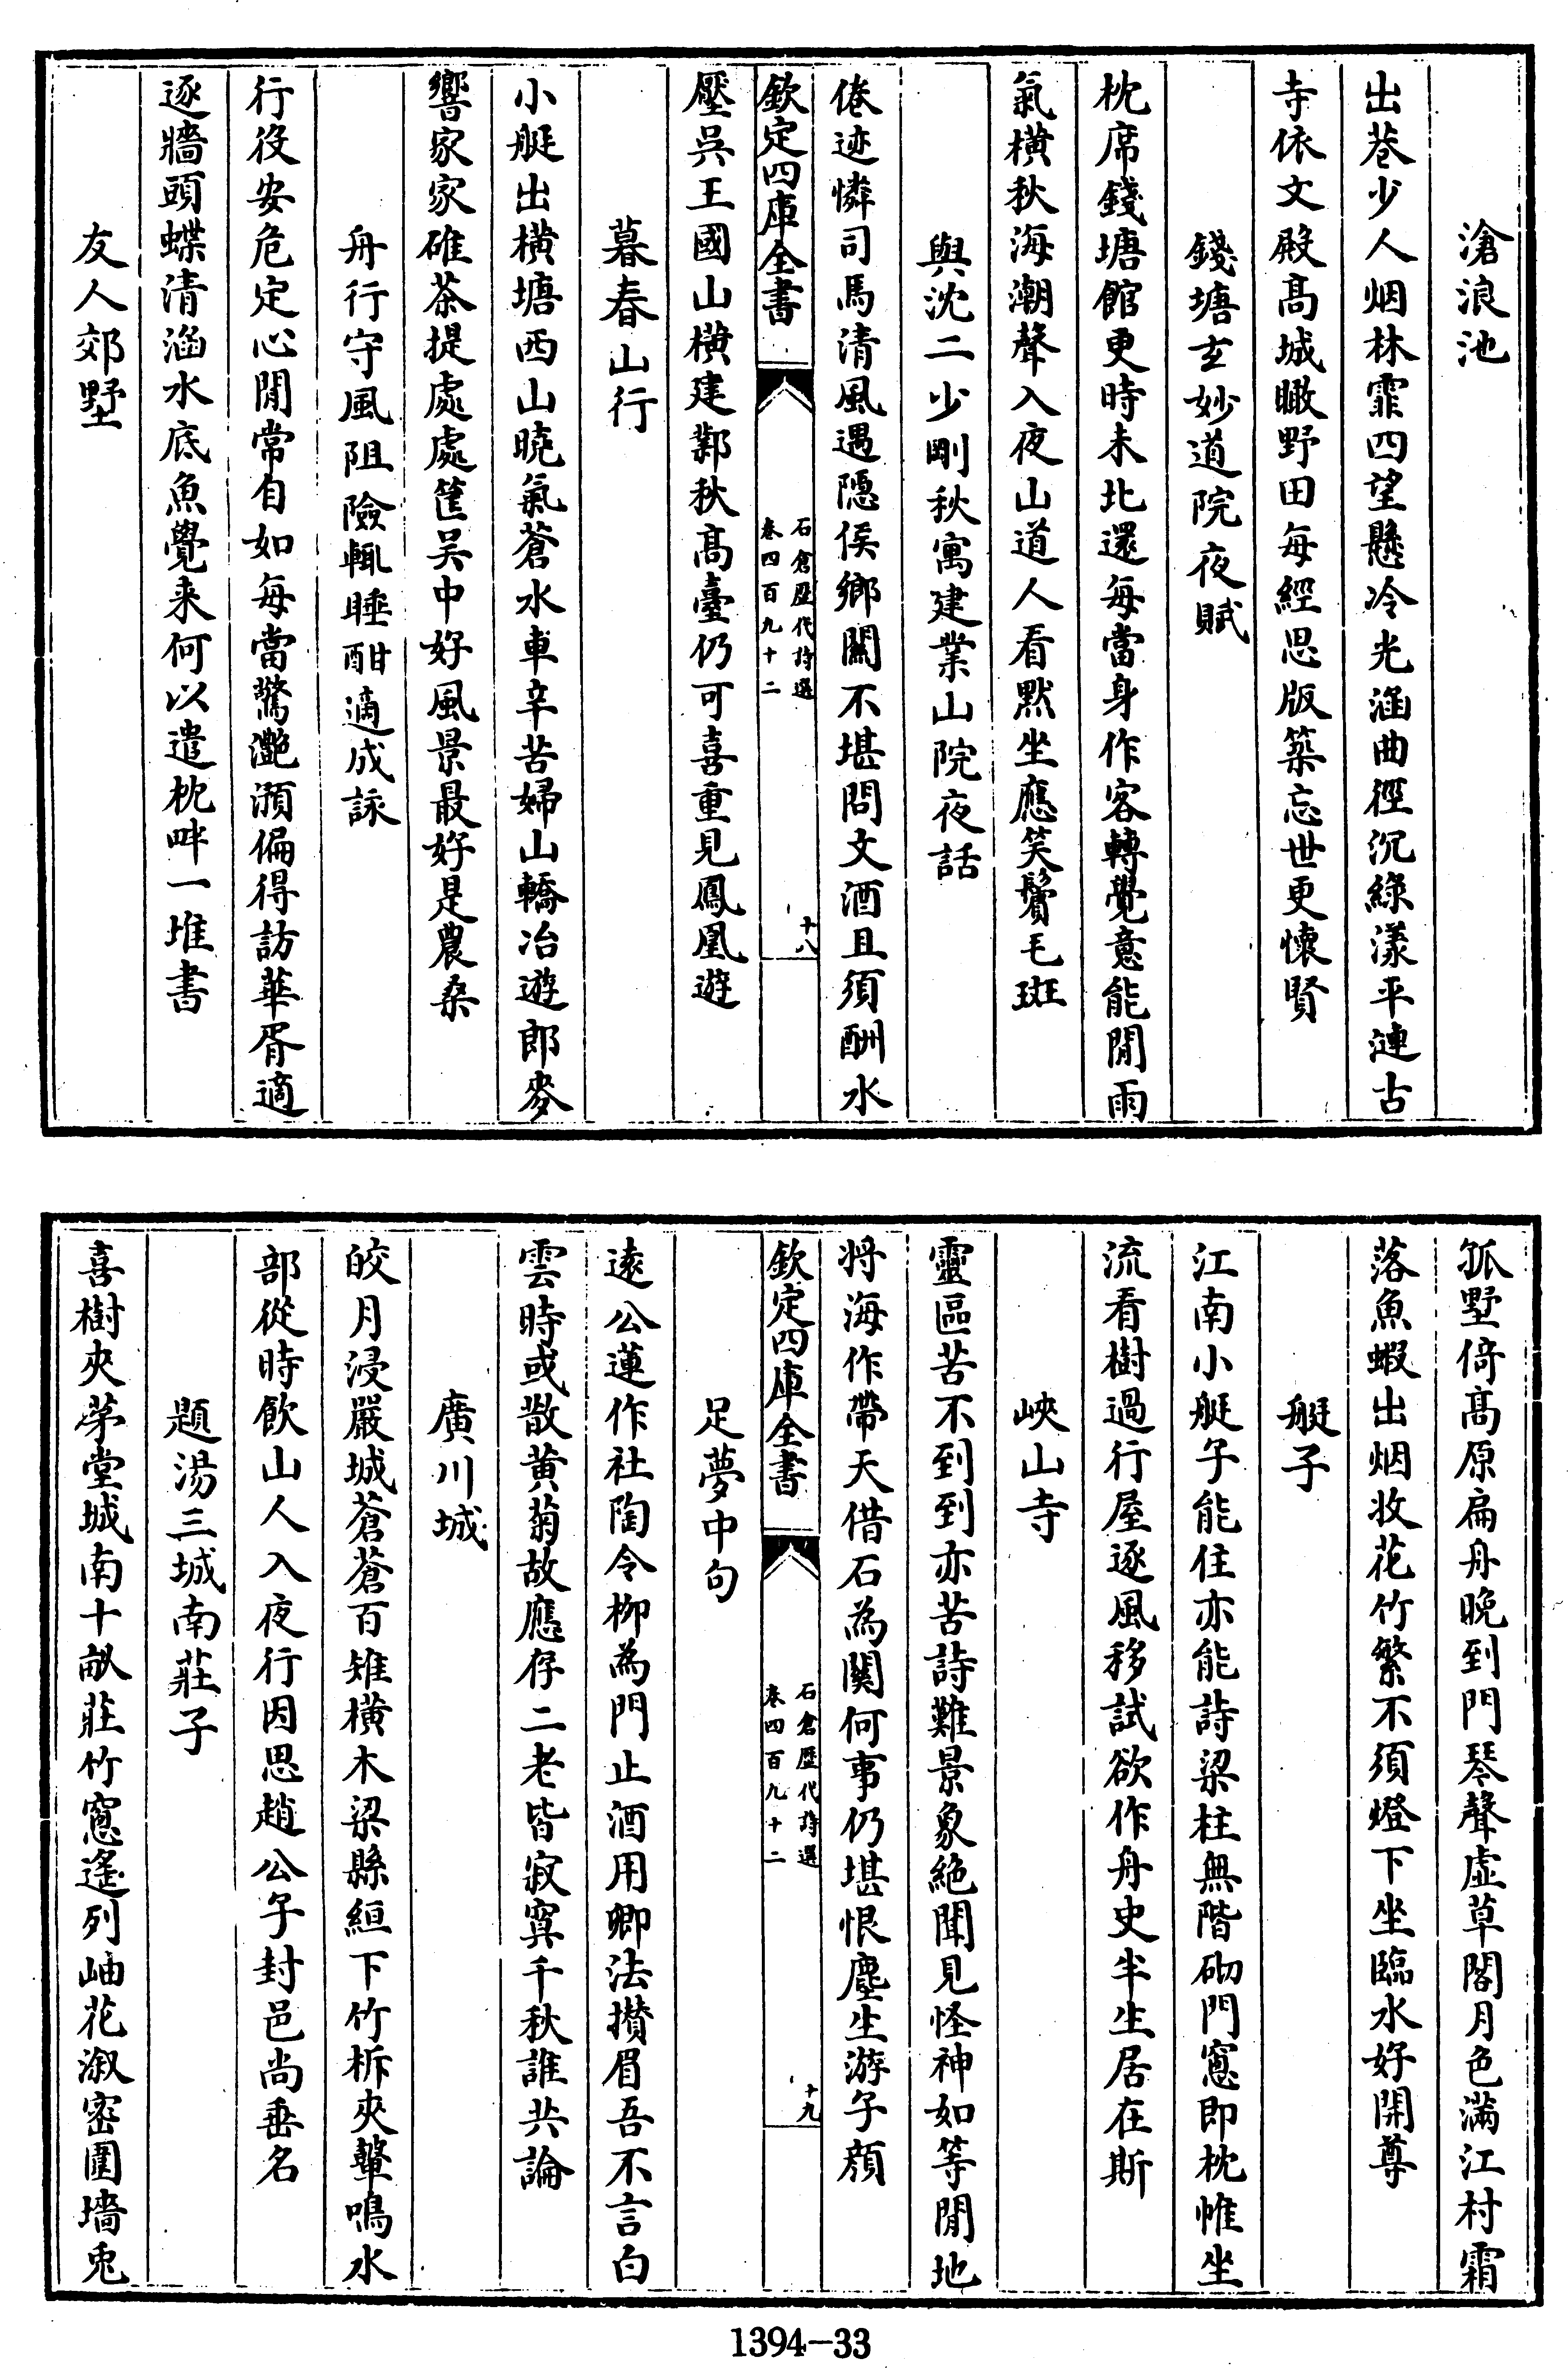 滄浪池
出巷少人烟林霏四望懸冷光涵曲徑沉綠漾平漣古
寺依文殿高城瞰野田每經思版築忘世更懷賢
錢塘玄妙道院夜賦
枕席錢塘館更時未北還每當身作客轉覺意能閒雨
氣橫秋海潮聲入夜山道人看默坐應笑鬢毛斑
與沈二少剛秋寓建業山院夜話
倦迹憐司馬清風遇隠侯鄉關不堪問文酒且須酬水
欽定四庫全書
石倉歷代詩選
卷四百九十二
十八
壓吳王國山橫建鄴秋高臺仍可喜重見鳳凰遊
暮春山行
小艇出橫塘西山曉氣蒼水車辛苦婦山轎冶遊郎麥
響家家碓茶提處處筐吳中好風景最好是農桑
舟行守風阻險輒睡酣適成詠
行役安危定心閒常自如每當驚灔澦偏得訪華胥適
逐牆頭蝶清涵水底魚覺来何以遣枕畔一堆書
友人郊墅
孤墅倚高原扁舟晚到門琴聲虛草閣月色滿江村霜
落魚蝦出烟收花竹繁不須燈下坐臨水好開尊
艇子
江南小艇子能住亦能詩梁柱無階砌門窻即枕帷坐
流看樹過行屋逐風移試欲作舟史半生居在斯
峽山寺
靈區苦不到到亦苦詩難景象絶聞見怪神如等閒地
将海作帶天借石為關何事仍堪恨塵生游子顔
欽定四庫全書
石倉歷代詩選
卷四百九十二
十九
足夢中句
逺公蓮作社陶令栁為門止酒用卿法攅眉吾不言白
雲時或散黄菊故應存二老皆寂寞千秋誰共論
廣川城
皎月浸嚴城蒼蒼百雉橫木梁縣絙下竹柝夾鼙鳴水
部從時飲山人入夜行因思趙公子封邑尚垂名
題湯三城南莊子
喜樹夾茅堂城南十畝莊竹窻遙列岫花溆密圍墻兎
1394-33